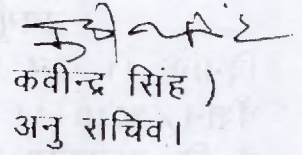 कवीन्द्र सिंह )
अनु सचिव।